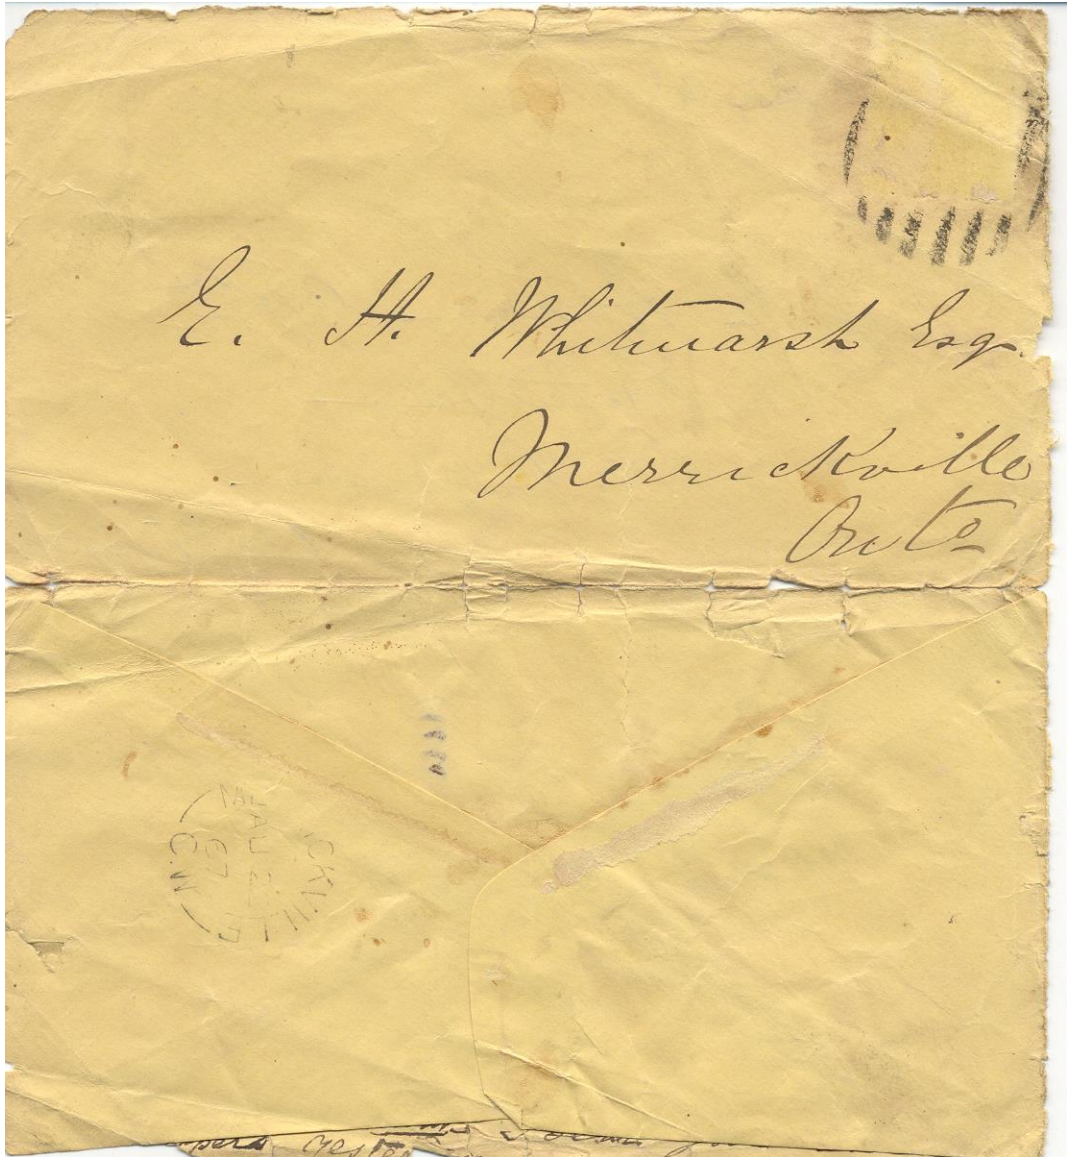 E. H. Whitmarsh Esqr.
Merrickville
Onto
CKVILLE
AU 2
67
C.W